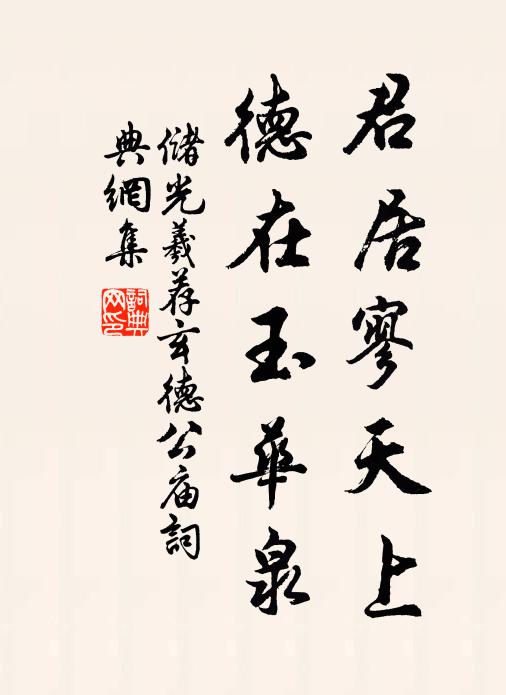 君居寥天上
德在玉華泉
儲光羲荐玄德公庙詞
典網集
詞典網印